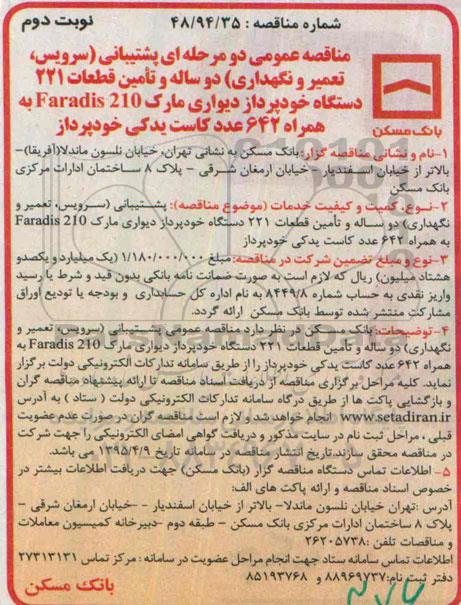 شماره مناقصه : ۴۸/۹۴/۳۵
نوبت دوم
مناقصه عمومی دو مرحله ای پشتیبانی (سرویس،
تعمیر و نگهداری) دو ساله و تأمین قطعات ۲۲۱
دستگاه خودپرداز دیواری مارک Faradis 210 به
همراه ۶۴۲ عدد کاست یدکی خودپرداز
بانک مسکن
۱-نام و نشانی مناقصه گزار: بانک مسکن به نشانی تهران، خیابان نلسون ماندلا(آفریقا)-
بالاتر از خیابان اسفندیار - خیابان ارمغان شرقی - پلاک ۸ ساختمان ادارات مرکزی
بانک مسکن
۲-نوع، کمیت و کیفیت خدمات (موضوع مناقصه): پشتیبانی (سرویس، تعمیر و
نگهداری) دو ساله و تأمین قطعات ۲۲۱ دستگاه خودپرداز دیواری مارک Faradis 210
به همراه ۶۴۲ عدد کاست یدکی خودپرداز
۳-نوع و مبلغ تضمین شرکت در مناقصه: مبلغ ۱/۱۸۰/۰۰۰/۰۰۰ (یک میلیارد و یکصدو
هشتاد میلیون) ریال که لازم است به صورت ضمانت نامه بانکی بدون قید و شرط یا رسید
واریز نقدی به حساب شماره ۸۴۴۹/۸ به نام اداره کل حسابداری و بودجه یا تودیع اوراق
مشارکت منتشر شده توسط بانک مسکن ارائه گردد.
۴-توضیحات: بانک مسکن در نظر دارد مناقصه عمومی پشتیبانی (سرویس، تعمیر و
نگهداری) دو ساله و تأمین قطعات ۲۲۱ دستگاه خودپرداز دیواری مارک Faradis 210 به
همراه ۶۴۲ عدد کاست یدکی خودپرداز را از طریق سامانه تدارکات الکترونیکی دولت برگزار
نماید. کلیه مراحل برگزاری مناقصه از دریافت اسناد مناقصه تا ارائه پیشنهاد مناقصه گران
و بازگشایی پاکت ها از طریق درگاه سامانه تدارکات الکترونیکی دولت ( ستاد ) به آدرس
www.setadiran.ir انجام خواهد شد و لازم است مناقصه گران در صورت عدم عضویت
قبلی ، مراحل ثبت نام در سایت مذکور و دریافت گواهی امضای الکترونیکی را جهت شرکت
در مناقصه محقق سازند.تاریخ انتشار مناقصه در سامانه تاریخ ۱۳۹۵/۴/۹ می باشد.
۵- اطلاعات تماس دستگاه مناقصه گزار (بانک مسکن) جهت دریافت اطلاعات بیشتر در
خصوص اسناد مناقصه و ارائه پاکت های الف:
آدرس :تهران خیابان نلسون ماندلا- بالاتر از خیابان اسفندیار - -خیابان ارمغان شرقی -
پلاک ۸ ساختمان ادارات مرکزی بانک مسکن - طبقه دوم -دبیرخانه کمیسیون معاملات
و مناقصات تلفن :۲۶۲۰۵۷۳۸
اطلاعات تماس سامانه ستاد جهت انجام مراحل عضویت در سامانه : مرکز تماس ۲۷۳۱۳۱۳۱
دفتر ثبت نام:۸۸۹۶۹۷۳۷ و ۸۵۱۹۳۷۶۸
بانک مسکن